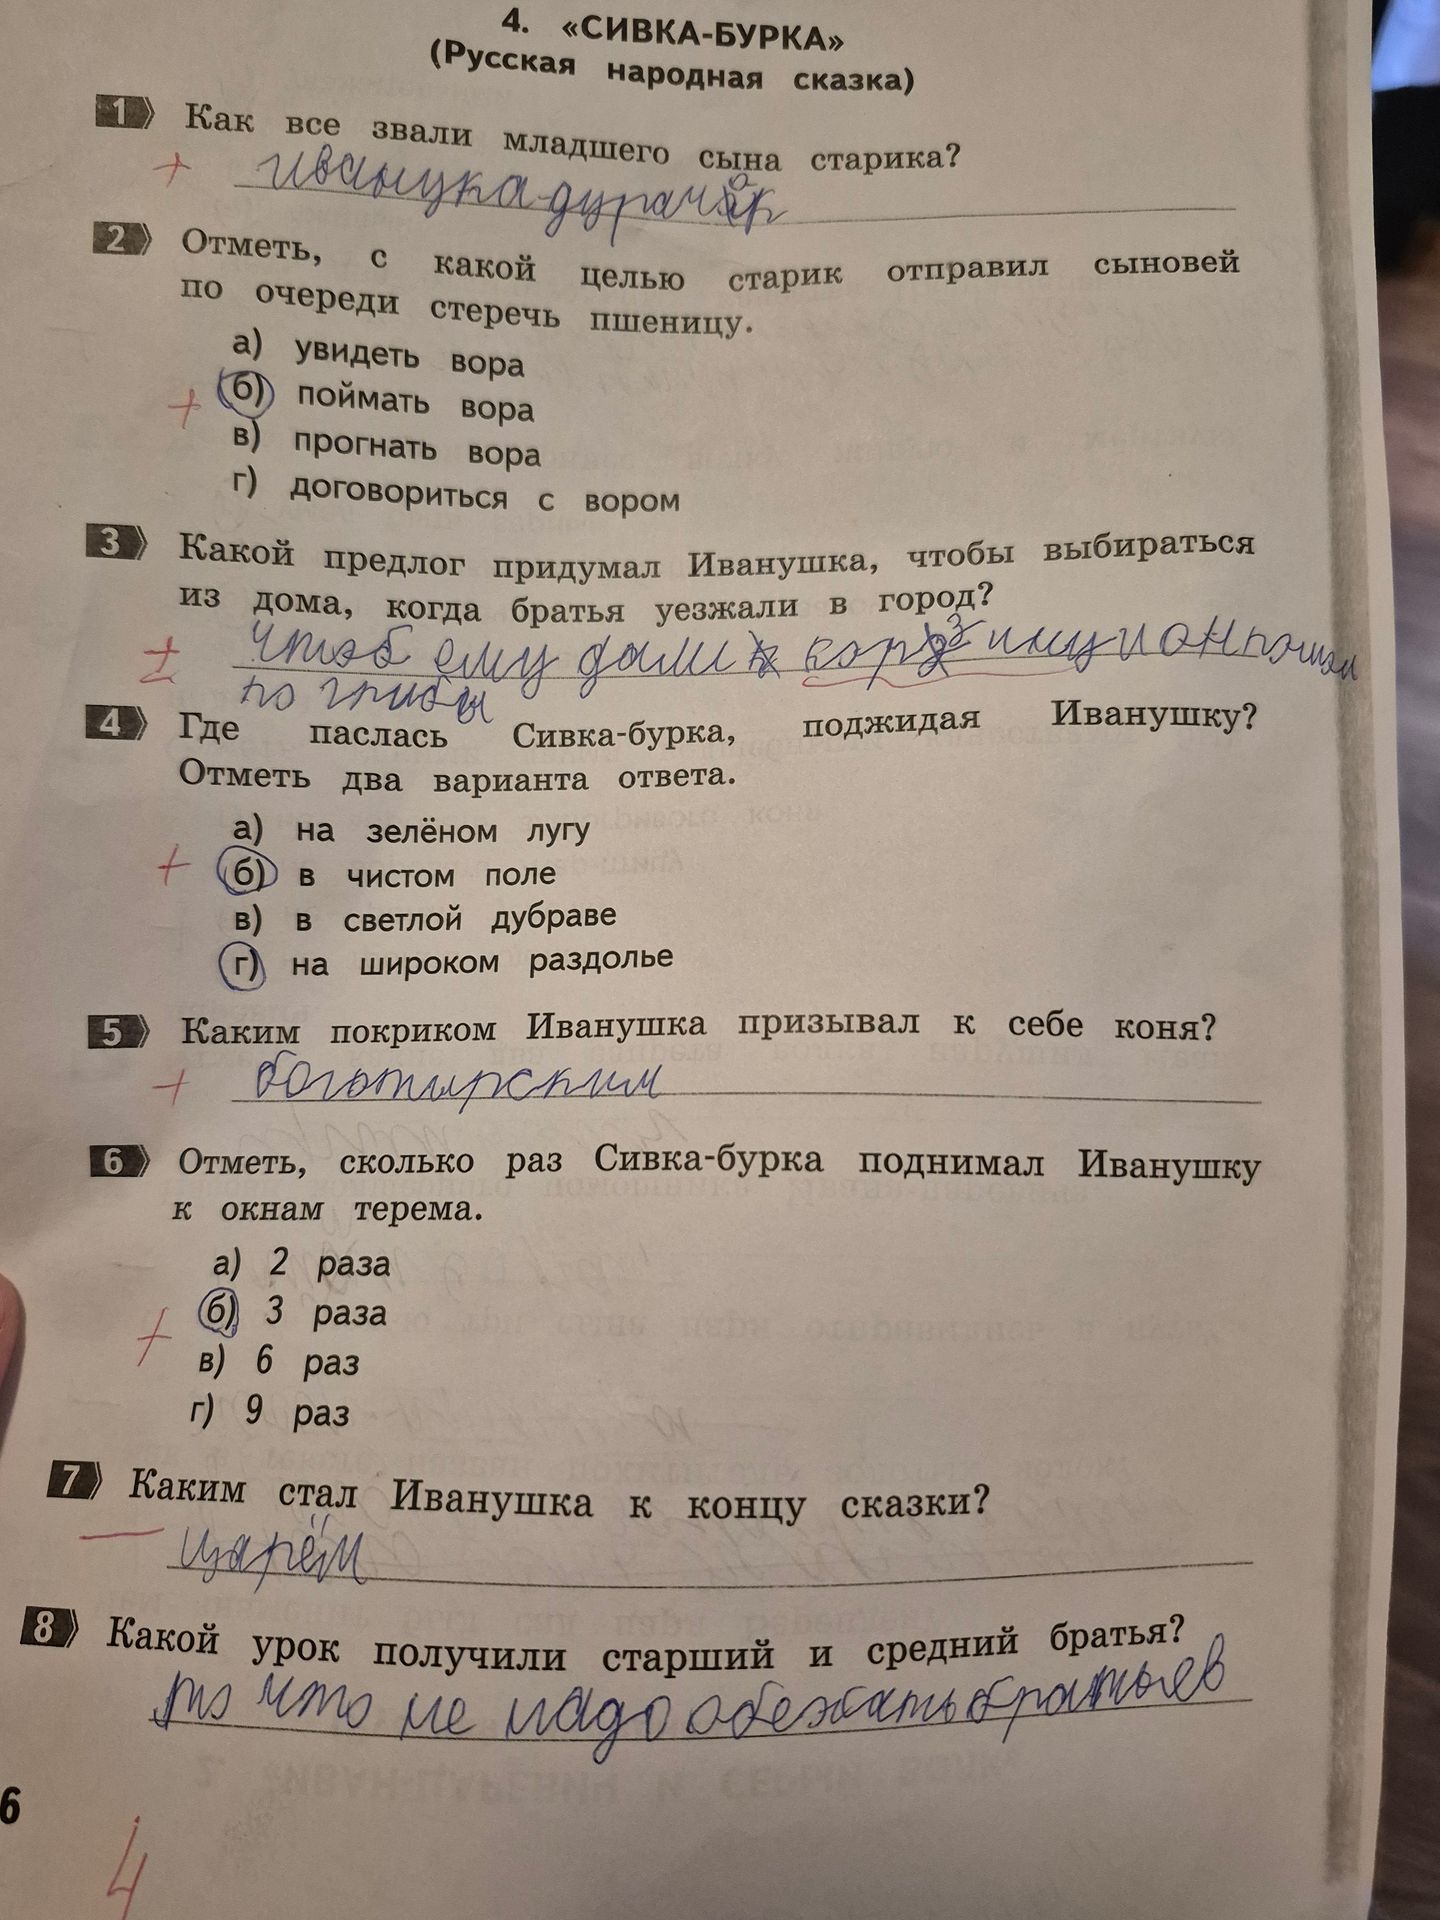 4. «СИВКА-БУРКА»
(Русская народная сказка)
1 Как все звали младшего сына старика?
+ иванушка-дурачок
2 Отметь, с какой целью старик отправил сыновей
по очереди стеречь пшеницу.
а) увидеть вора
+ б) поймать вора
в) прогнать вора
г) договориться с вором
3 Какой предлог придумал Иванушка, чтобы выбираться
из дома, когда братья уезжали в город?
± чтоб ему дали корзину и он пошол
по грибы
4 Где паслась Сивка-бурка, поджидая Иванушку?
Отметь два варианта ответа.
а) на зелёном лугу
+ б) в чистом поле
в) в светлой дубраве
г) на широком раздолье
5 Каким покриком Иванушка призывал к себе коня?
+ богатырским
6 Отметь, сколько раз Сивка-бурка поднимал Иванушку
к окнам терема.
а) 2 раза
+ б) 3 раза
в) 6 раз
г) 9 раз
7 Каким стал Иванушка к концу сказки?
— царём
8 Какой урок получили старший и средний братья?
то что не надо обежать братьев
6
4